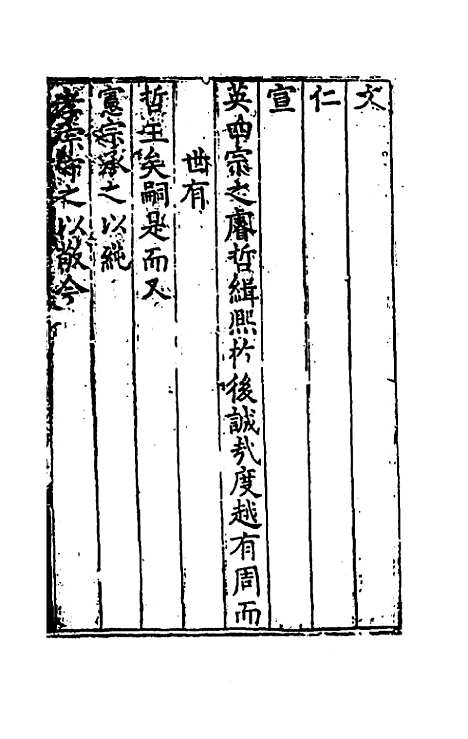 文
仁
宣
英四宗之睿哲緝熙扵後誠㢤度越有周而
世有
哲王矣嗣是而又
憲宗承之以純
孝宗守之以敬今